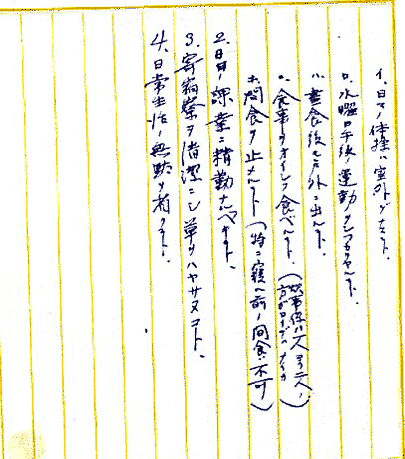 イ、日々ノ体操ハ室外デナスコト
ロ、水曜日午後ノ運動ヲシッカリヤルコト
ハ、昼食後モ戸外ニ出ルコト、
ニ、食事ヲオイシク食ベルコト、(炊事係ハ一人ヨリ二人ノ方ガ
ホ、間食ヲ止メルコト(特ニ寝ル前ノ間食ハ不可)
2、日日ノ課業ニ精勤ナルベキコト、
3、寄宿寮ヲ清潔ニシ草ヲハヤサヌコト、
4、日常生活ノ無駄ヲ省クコト、